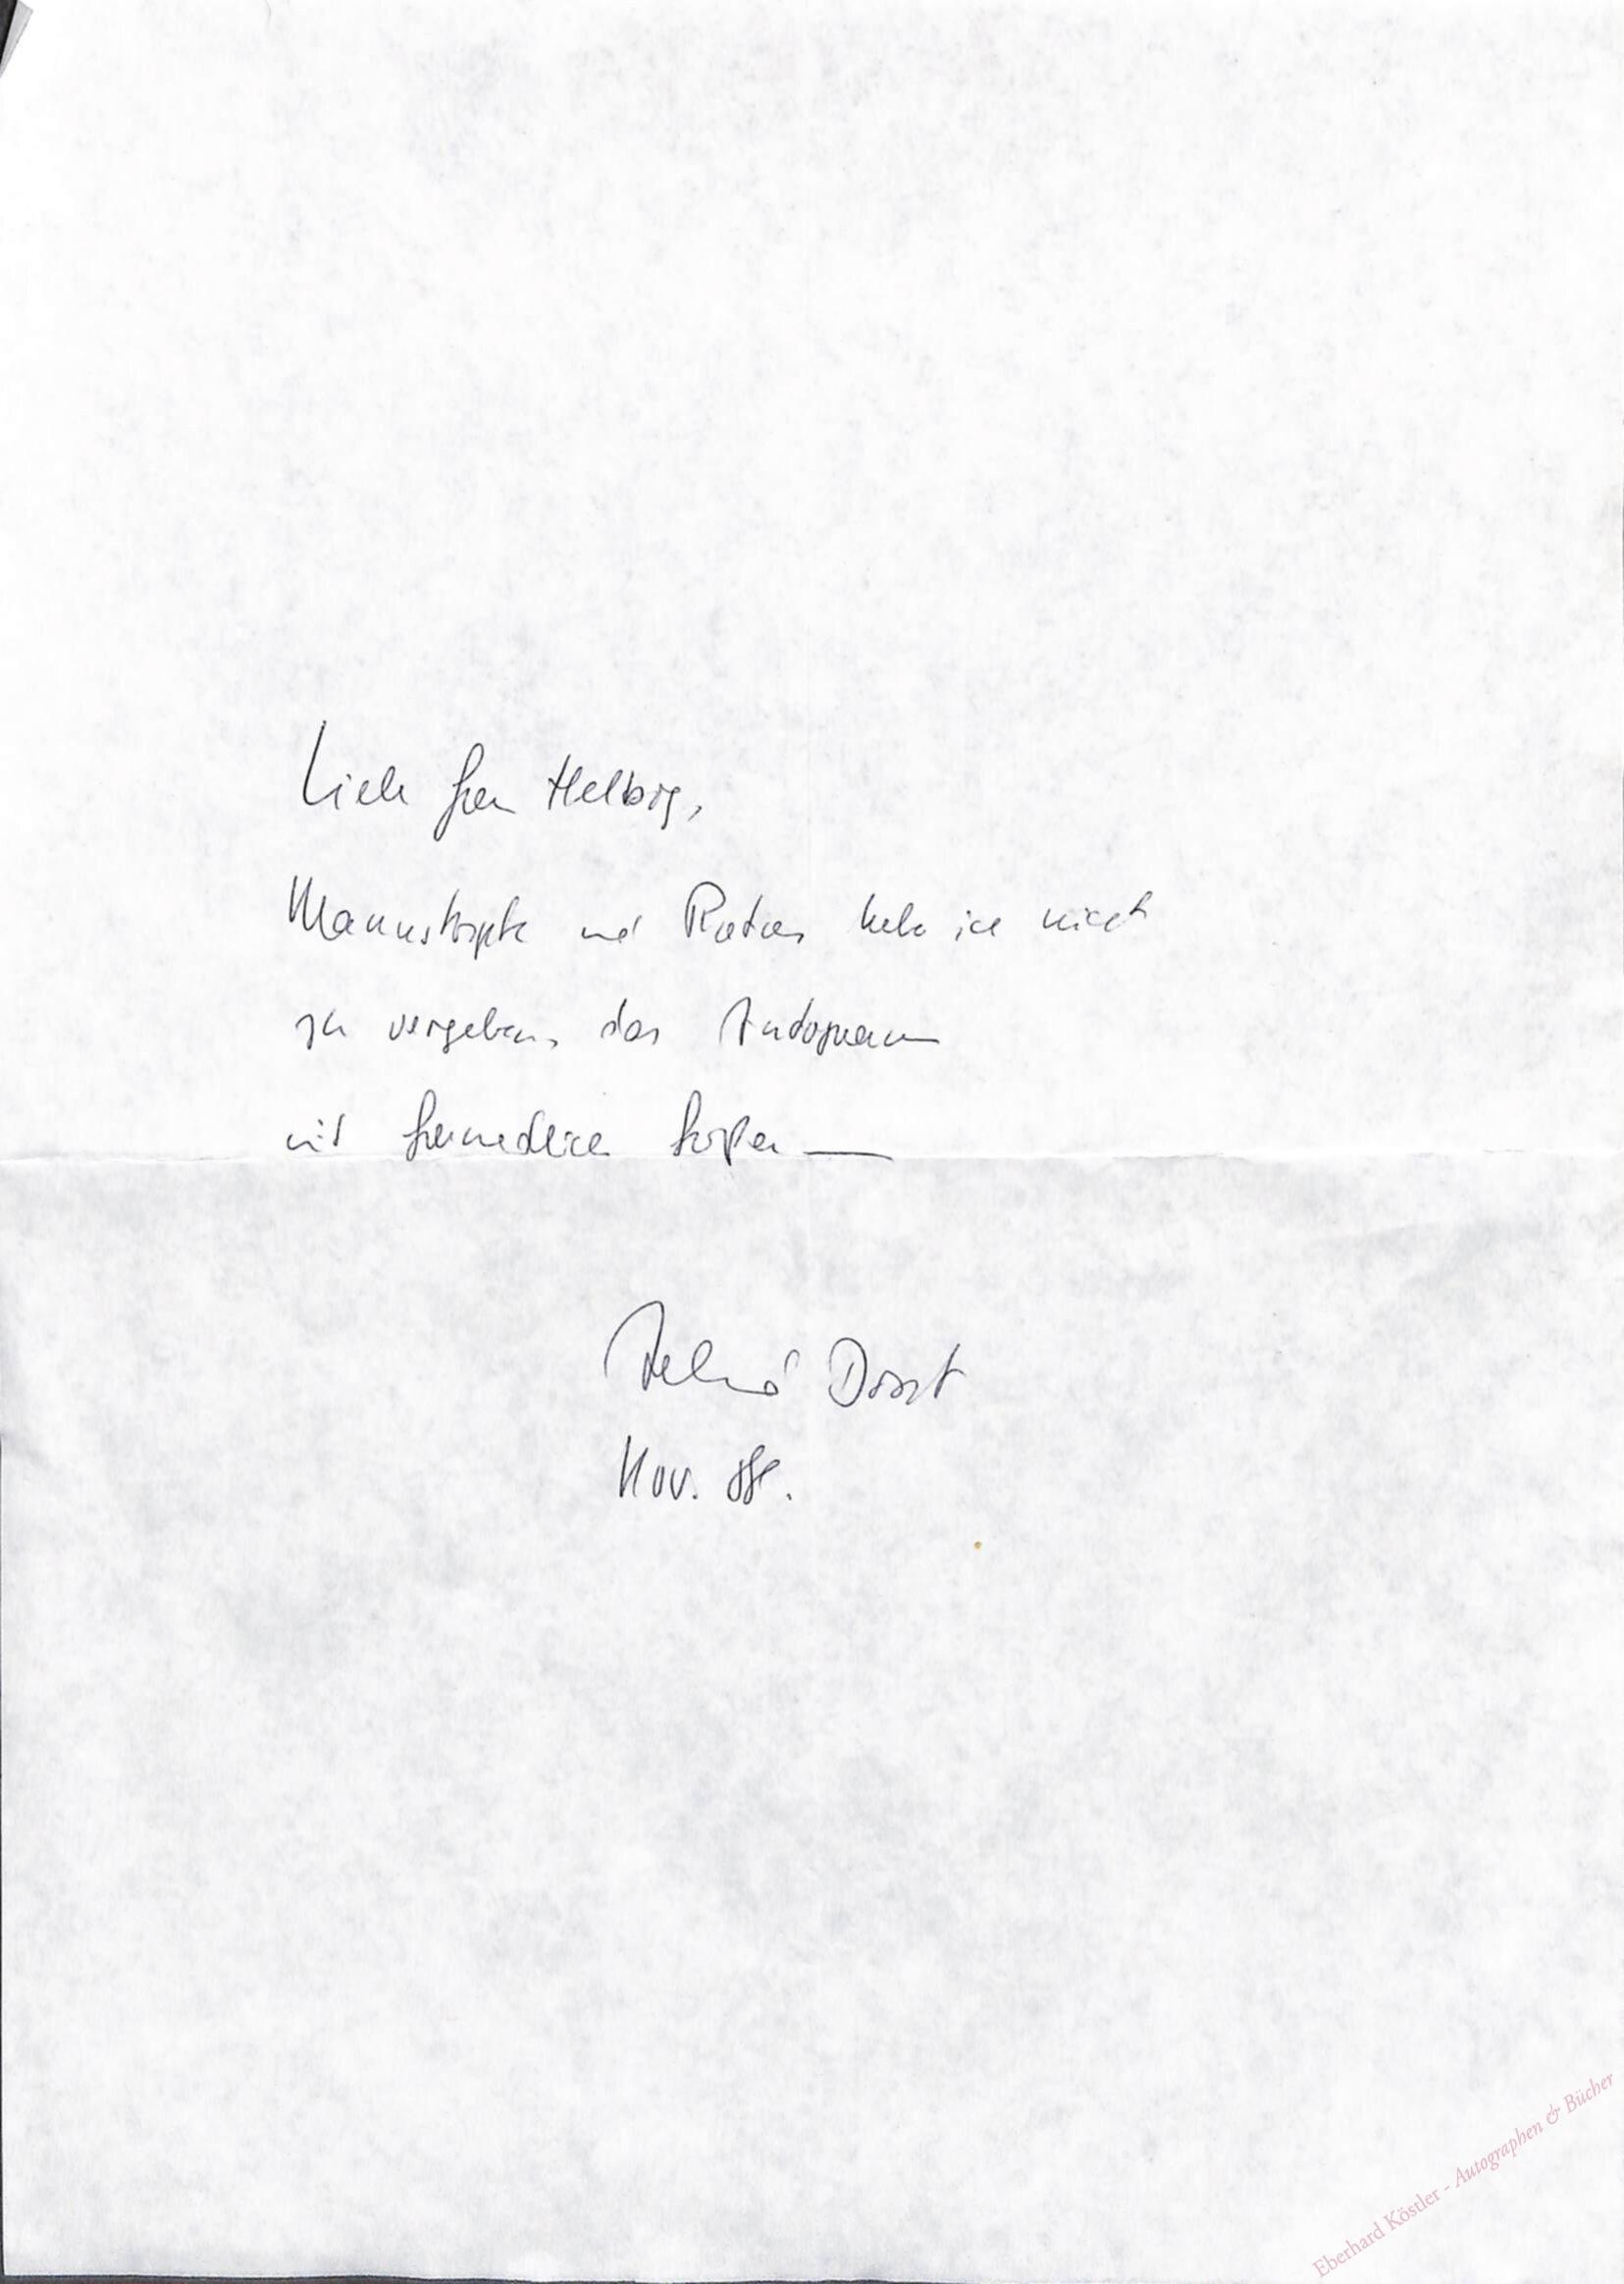 Liebe Frau Helbig,
Manuskripte und habe ich nicht
zu vergeben, das Autogramm
mit freundlichen Grüßen
Tankred Dorst
Nov. 88.
Eberhard Köstler - Autographen & Bücher